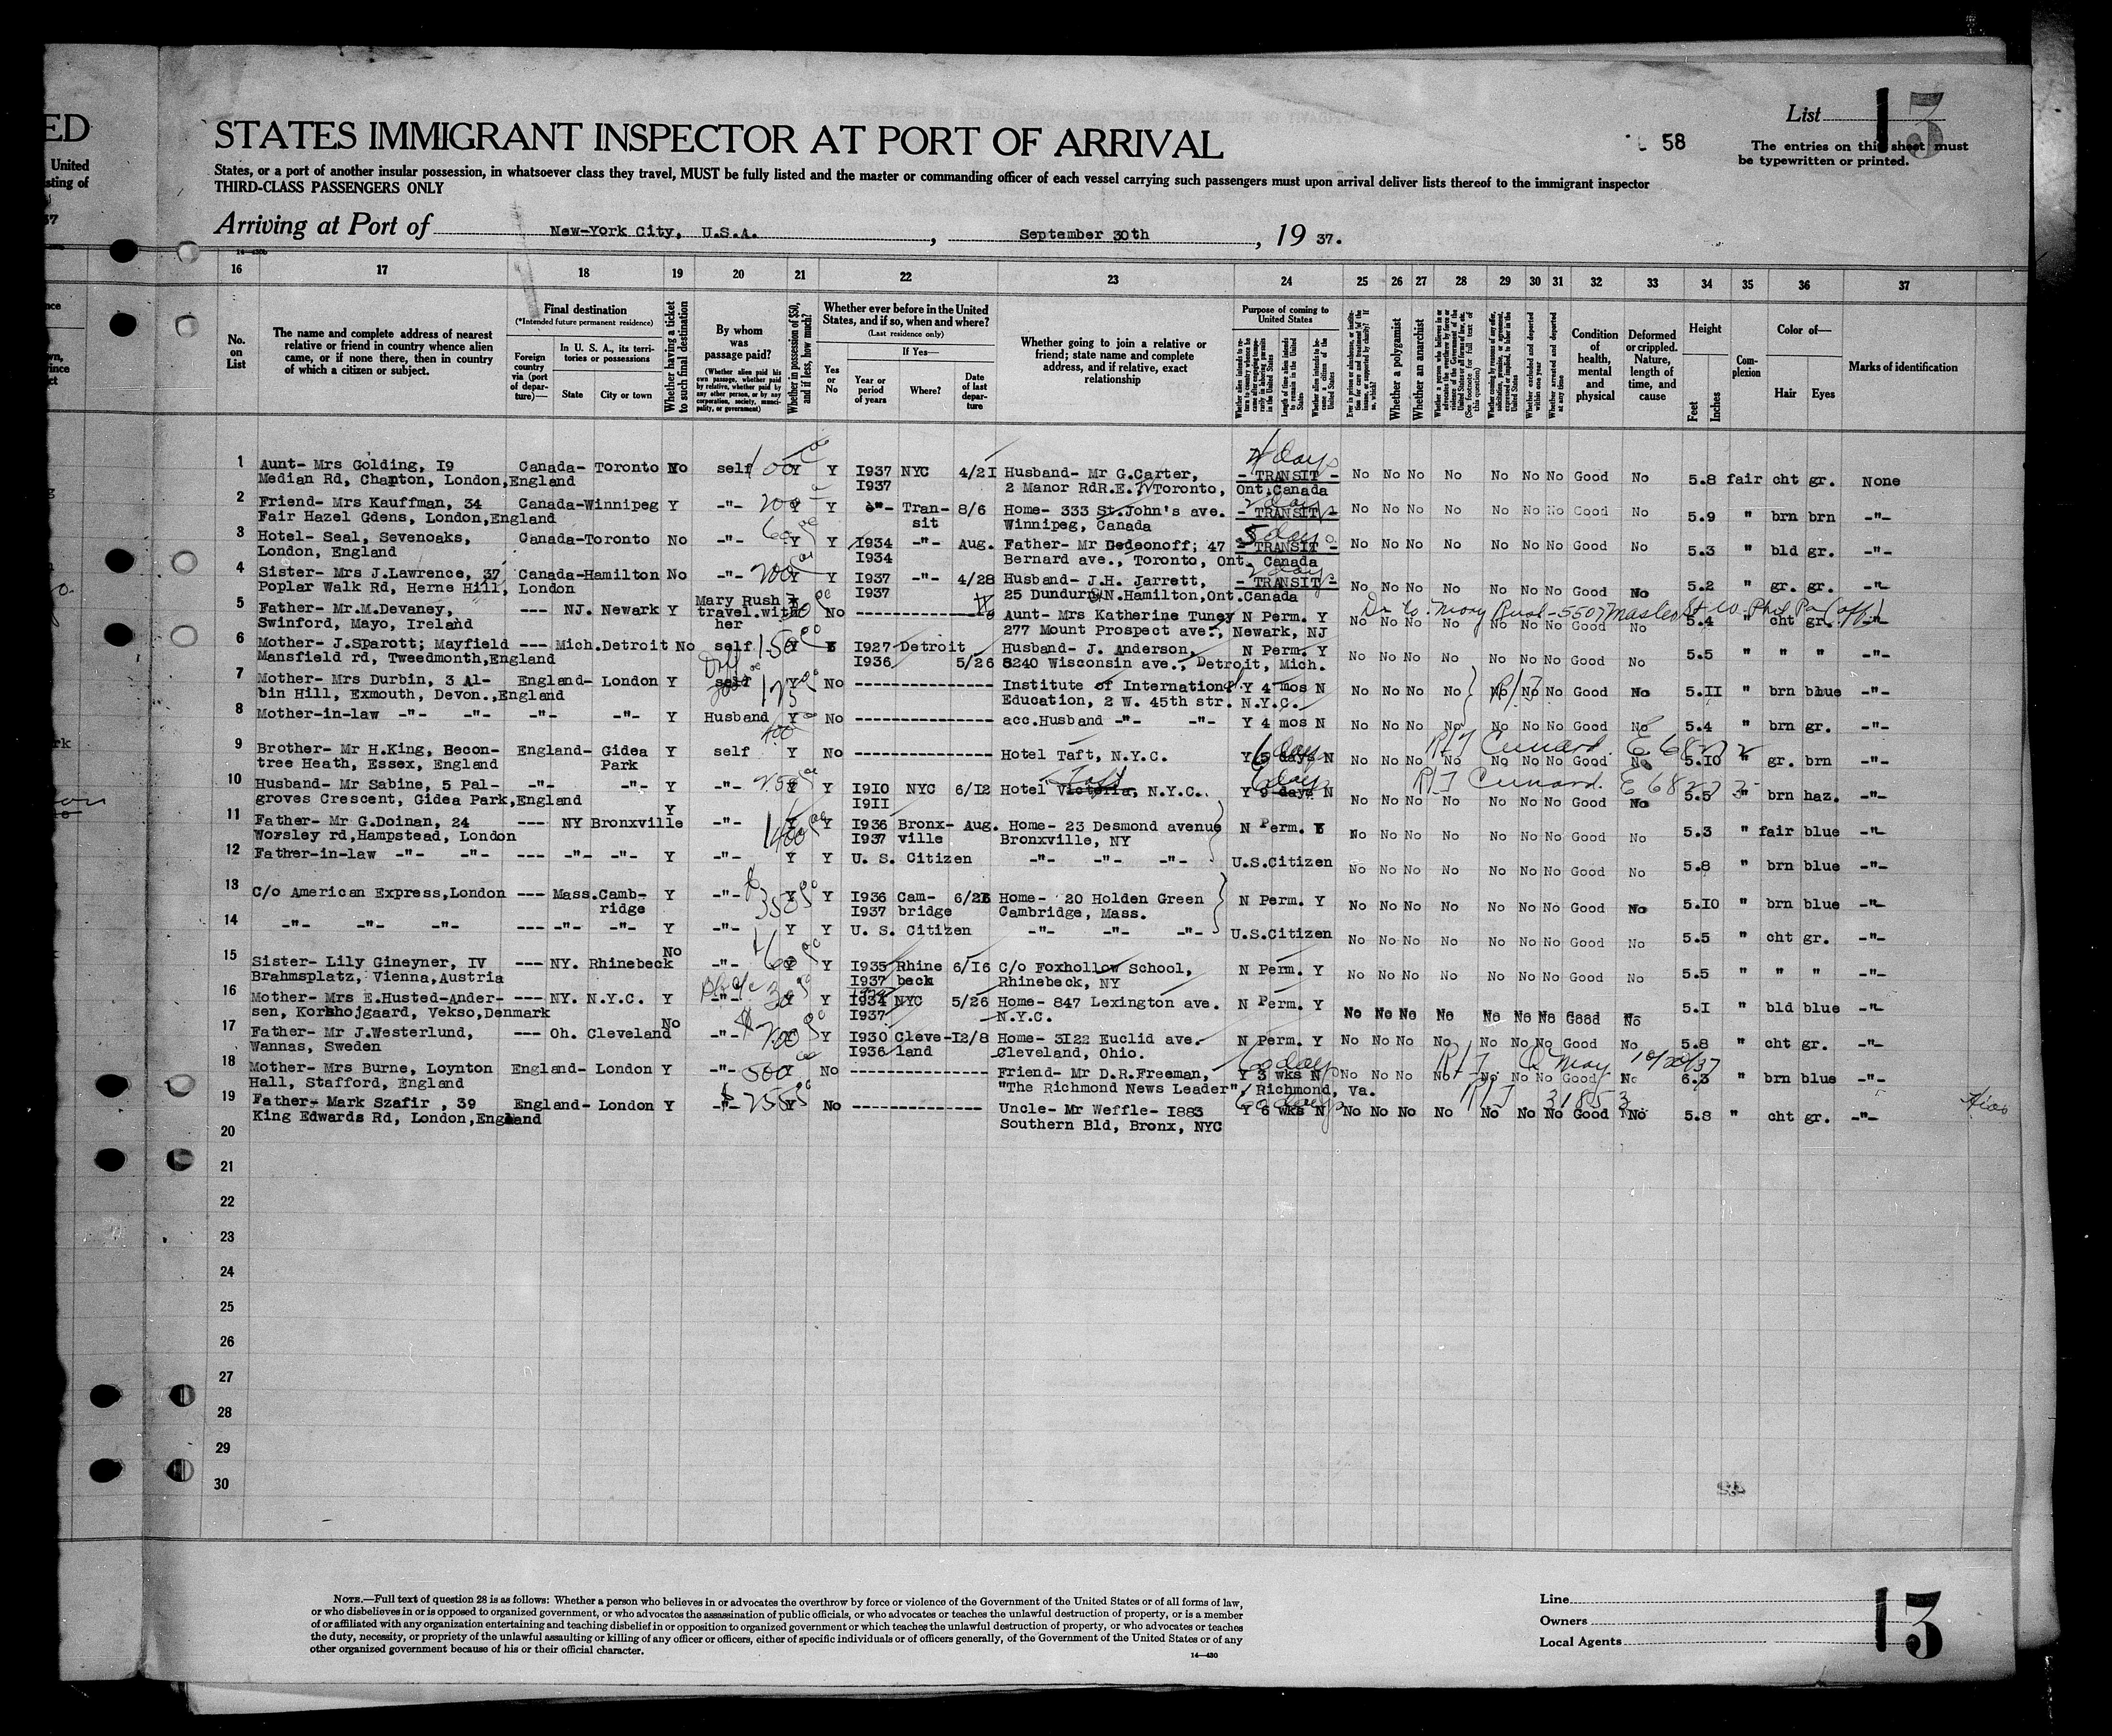 ED
United
sting of
37
List 13
58
STATES IMMIGRANT INSPECTOR AT PORT OF ARRIVAL
The entries on this sheet must
be typewritten or printed.
States, or a port of another insular possession, in whatsoever class they travel, MUST be fully listed and the master or commanding officer of each vessel carrying such passengers must upon arrival deliver lists thereof to the immigrant inspector
THIRD-CLASS PASSENGERS ONLY
Arriving at Port of New-York City, U.S.A. , September 30th , 19 37.
16 17 18 19 20 21 22 23 24 25 26 27 28 29 30 31 32 33 34 35 36 37
No. on List
The name and complete address of nearest relative or friend in country whence alien came, or if none there, then in country of which a citizen or subject.
Final destination
(*Intended future permanent residence)
Foreign country via (port of departure)—
In U. S. A., its territories or possessions
State
City or town
Whether having a ticket to such final destination
By whom was passage paid?
(Whether alien paid his own passage, whether paid by relative, whether paid by any other person, or by any corporation, society, municipality, or government)
Whether in possession of $50, and if less, how much?
Whether ever before in the United States, and if so, when and where?
(Last residence only)
Yes or No
If Yes—
Year or period of years
Where?
Date of last departure
Whether going to join a relative or friend; state name and complete address, and if relative, exact relationship
Purpose of coming to United States
Length of time alien intends to remain in the United States
Whether alien intends to become a citizen of the United States
Whether a polygamist
Whether an anarchist
Whether excluded and deported within one year
Whether arrested and deported at any time
Condition of health, mental and physical
Deformed or crippled. Nature, length of time, and cause
Height
Feet Inches
Complexion
Color of—
Hair Eyes
Marks of identification
1 Aunt- Mrs Golding, I9 Canada- Toronto No self 100 Y Y I937 NYC 4/2I Husband- Mr G.Carter, - TRANSIT - No No No No No No No Good No 5.8 fair cht gr. None
Median Rd, Chapton, London,England I937 2 Manor RdR.E. Toronto, Ont.Canada
2 Friend- Mrs Kauffman, 34 Canada-Winnipeg Y -"- 200 Y Y -"- Tran- 8/6 Home- 333 St.John's ave. - TRANSIT - No No No No No No No Good No 5.9 " brn brn -"-
Fair Hazel Gdens, London,England sit Winnipeg, Canada
3 Hotel- Seal, Sevenoaks, Canada-Toronto No -"- 60 Y Y I934 -"- Aug. Father- Mr Dedeonoff; 47 5 days - TRANSIT - No No No No No No No Good No 5.3 " bld gr. -"-
London, England I934 Bernard ave., Toronto, Ont. Canada
4 Sister- Mrs J.Lawrence, 37 Canada-Hamilton No -"- 200 Y Y I937 -"- 4/28 Husband- J.H. Jarrett, - TRANSIT - No No No No No No No Good No 5.2 " gr. gr. -"-
Poplar Walk Rd, Herne Hill, London I937 25 Dundurn N.Hamilton,Ont.Canada
5 Father- Mr.M.Devaney, --- NJ. Newark Y Mary Rush travel.with her No Aunt- Mrs Katherine Tuney N Perm. Y No No No No No No No Good No 5.4 " cht gr. -"-
Swinford, Mayo, Ireland 277 Mount Prospect ave., Newark, NJ
6 Mother- J.Sparott; Mayfield --- Mich.Detroit No self 150 Y Y I927 Detroit Husband- J. Anderson, N Perm. Y No No No No No No No Good No 5.5 " " " -"-
Mansfield rd, Tweedmonth,England I936 5/26 8240 Wisconsin ave., Detroit, Mich.
7 Mother- Mrs Durbin, 3 Al- England- London Y self 175 Y No Institute of International Y 4 mos N No No No No No No No Good No 5.II " brn blue -"-
bin Hill, Exmouth, Devon.,England Education, 2 W. 45th str. N.Y.C.
8 Mother-in-law -"- -"- -"- -"- Y Husband Y No acc.Husband -"- -"- Y 4 mos N No No No No No No No Good No 5.4 " brn gr. -"-
9 Brother- Mr H.King, Becon- England- Gidea Y self 400 Y No Hotel Taft, N.Y.C. Y 5 days N No No No No No No No Good No 5.10 " gr. brn -"-
tree Heath, Essex, England Park R/T Cunard. E 68272
10 Husband- Mr Sabine, 5 Pal- -"- -"- Y -"- 250 Y Y I9I0 NYC 6/I2 Hotel Victoria, N.Y.C. Taft Y 9 days N No No No No No No No Good No 5.5 " brn haz. -"-
groves Crescent, Gidea Park,England I9II R/T Cunard. E 68273
11 Father- Mr G.Doinan, 24 --- NY Bronxville Y -"- Y Y I936 Bronx- Aug. Home- 23 Desmond avenue N Perm. No No No No No No No Good No 5.3 " fair blue -"-
Worsley rd,Hampstead, London I937 ville Bronxville, NY
12 Father-in-law -"- -"- --- -"- -"- Y -"- Y Y U. S. Citizen -"- -"- -"- U.S.Citizen No No No No No No No Good No 5.8 " brn blue -"-
13 C/o American Express,London --- Mass.Camb- Y -"- 350 Y Y I936 Cam- 6/26 Home- 20 Holden Green N Perm. Y No No No No No No No Good No 5.10 " brn blue -"-
ridge I937 bridge Cambridge, Mass.
14 -"- -"- -"- --- -"- -"- Y -"- Y Y U. S. Citizen -"- -"- -"- U.S.Citizen No No No No No No No Good No 5.5 " cht gr. -"-
15 Sister- Lily Gineyner, IV --- NY. Rhinebeck No -"- 60 Y Y I935 Rhine 6/I6 C/o Foxhollow School, N Perm. Y No No No No No No No Good No 5.5 " " " -"-
Brahmsplatz, Vienna,Austria I937 beck Rhinebeck, NY
16 Mother- Mrs E.Husted-Ander- --- NY. N.Y.C. Y -"- 30 Y Y I934 NYC 5/26 Home- 847 Lexington ave. N Perm. Y No No No No No No No Good No 5.I " bld blue -"-
sen, Korshojgaard, Vekso,Denmark I937 N.Y.C.
17 Father- Mr J.Westerlund, --- Oh. Cleveland No -"- $200 Y I930 Cleve- I2/8 Home- 3I22 Euclid ave. N Perm. Y No No No No No No No Good No 5.8 " cht gr. -"-
Wannas, Sweden I936 land Cleveland, Ohio.
18 Mother- Mrs Burne, Loynton England- London Y -"- 500 Y No Friend- Mr D.R.Freeman, 60 days Y 3 wks N No No No No No No No Good No 6.3 " brn blue -"-
Hall, Stafford, England "The Richmond News Leader", Richmond, Va. R/T Q May 10/20/37
19 Father- Mark Szafir , 39 England- London Y -"- $255 Y No Uncle- Mr Weffle- I883 60 days Y 6 wks N No No No No No No No Good No 5.8 " cht gr. -"-
King Edwards Rd, London,England Southern Bld, Bronx, NYC R/T 31853 Hias
20
21
22
23
24
25
26
27
28
29
30
NOTE.—Full text of question 28 is as follows: Whether a person who believes in or advocates the overthrow by force or violence of the Government of the United States or of all forms of law,
or who disbelieves in or is opposed to organized government, or who advocates the assassination of public officials, or who advocates or teaches the unlawful destruction of property, or is a member
of or affiliated with any organization entertaining and teaching disbelief in or opposition to organized government or which teaches the unlawful destruction of property, or who advocates or teaches
the duty, necessity, or propriety of the unlawful assaulting or killing of any officer or officers, either of specific individuals or of officers generally, of the Government of the United States or of any
other organized government because of his or their official character.
14—430
Line
Owners
Local Agents
13